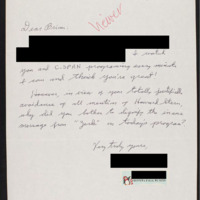 Viewer
Dear Brian,
I watch
you and C-SPAN programming every minute
I can and think you're great!
However, in view of your totally justifiable
avoidance of all mention of Howard Stern,
why did you bother to dignify the inane
message from "Jack" in today's program?
Very truly yours,